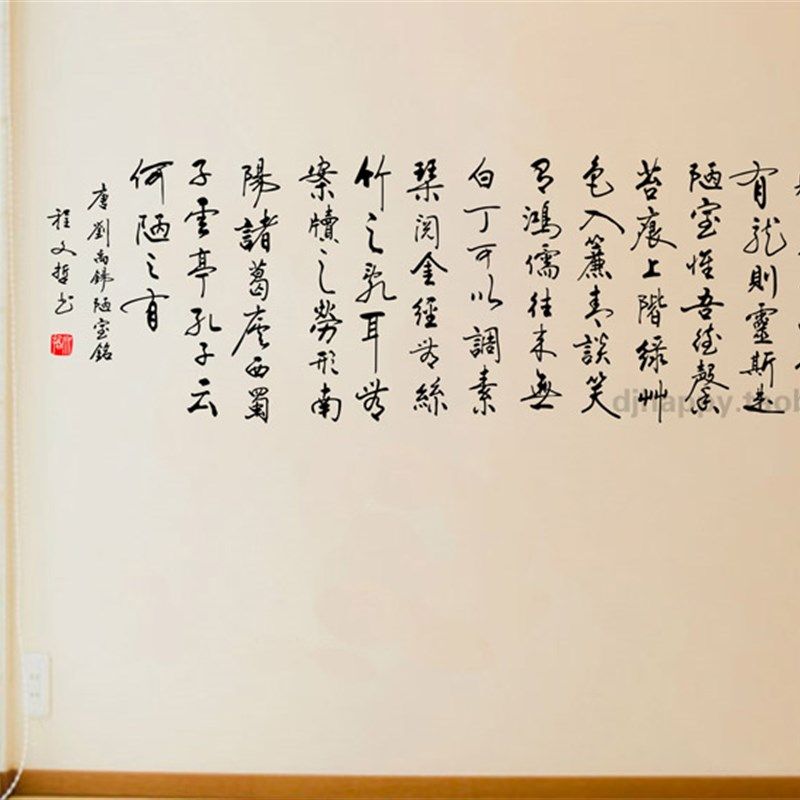 有龍則靈斯是
陋室惟吾德馨
苔痕上階綠艸
色入簾青談笑
有鴻儒往來無
白丁可以調素
琴閱金經無絲
竹之亂耳無
案牘之勞形南
陽諸葛廬西蜀
子雲亭孔子云
何陋之有
唐劉禹錫陋室銘
程文哲书
djhappy.taob